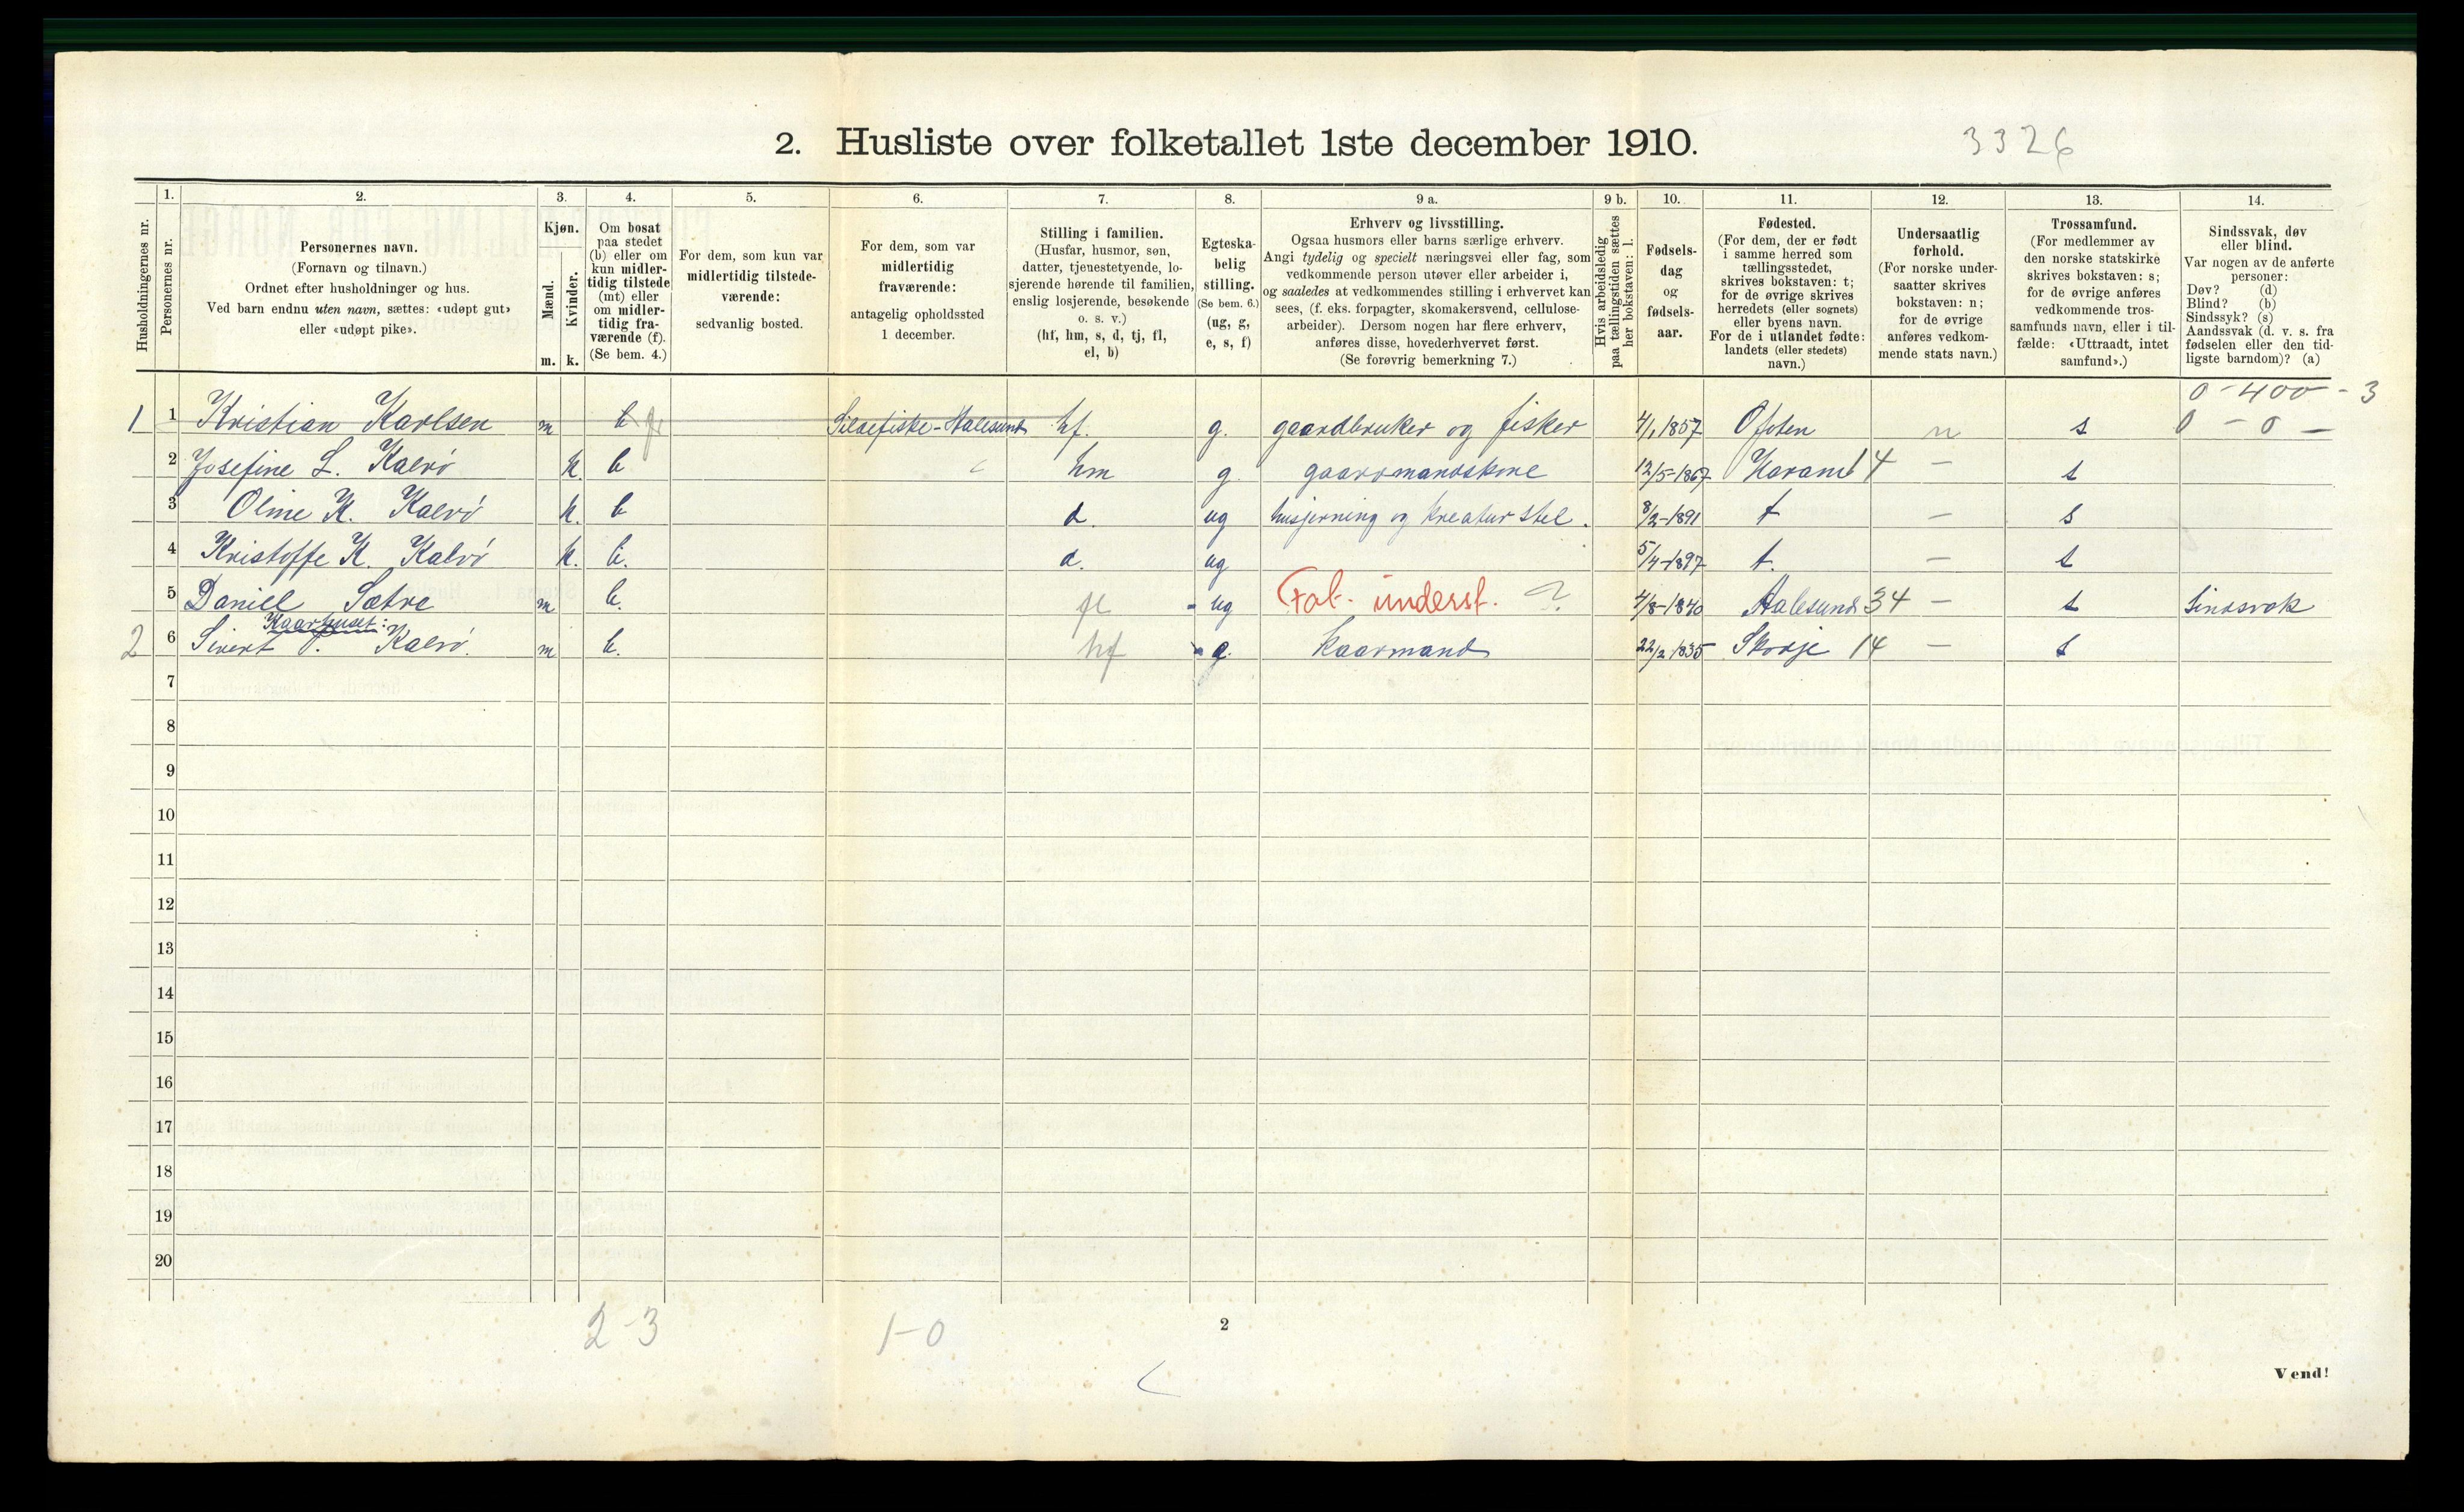 2. Husliste over folketallet 1ste december 1910. 3326
Husholdningernes nr.
1. Personernes nr.
2. Personernes navn.
(Fornavn og tilnavn.)
Ordnet efter husholdninger og hus.
Ved barn endnu uten navn, sættes: «udøpt gut»
eller «udøpt pike».
3. Kjøn.
Mænd. m.
Kvinder. k.
4. Om bosat
paa stedet
(b) eller om
kun midler-
tidig tilstede
(mt) eller
om midler-
tidig fra-
værende (f).
(Se bem. 4.)
5. For dem, som kun var
midlertidig tilstede-
værende:
sedvanlig bosted.
6. For dem, som var
midlertidig
fraværende:
antagelig opholdssted
1 december.
7. Stilling i familien.
(Husfar, husmor, søn,
datter, tjenestetyende, lo-
sjerende hørende til familien,
enslig losjerende, besøkende
o. s. v.)
(hf, hm, s, d, tj, fl,
el, b)
8. Egteska-
belig
stilling.
(Se bem. 6.)
(ug, g,
e, s, f)
9 a. Erhverv og livsstilling.
Ogsaa husmors eller barns særlige erhverv.
Angi tydelig og specielt næringsvei eller fag, som
vedkommende person utøver eller arbeider i,
og saaledes at vedkommendes stilling i erhvervet kan
sees, (f. eks. forpagter, skomakersvend, cellulose-
arbeider). Dersom nogen har flere erhverv,
anføres disse, hovederhvervet først.
(Se forøvrig bemerkning 7.)
9 b. Hvis arbeidsledig
paa tællingstiden sættes
her bokstaven: l.
10. Fødsels-
dag
og
fødsels-
aar.
11. Fødested.
(For dem, der er født
i samme herred som
tællingsstedet,
skrives bokstaven: t;
for de øvrige skrives
herredets (eller sognets)
eller byens navn.
For de i utlandet fødte:
landets (eller stedets)
navn.)
12. Undersaatlig
forhold.
(For norske under-
saatter skrives
bokstaven: n;
for de øvrige
anføres vedkom-
mende stats navn.)
13. Trossamfund.
(For medlemmer av
den norske statskirke
skrives bokstaven: s;
for de øvrige anføres
vedkommende tros-
samfunds navn, eller i til-
fælde: «Uttraadt, intet
samfund».)
14. Sindssvak, døv
eller blind.
Var nogen av de anførte
personer:
Døv? (d)
Blind? (b)
Sindssyk? (s)
Aandssvak (d. v. s. fra
fødselen eller den tid-
ligste barndom)? (a)
0-400-3
1 1 Kristian Karlsen m b f Sildefiske-Aalesund hf. g. gaardbruker og fisker 4/1 1857 Ofoten n s 0 - 0 -
2 Josefine L. Kalvö k. b hm g gaardmandskone 12/5-1867 Haram 14 - s
3 Oline K. Kalvö k. b d. ug husgjerning og kreaturstel. 8/2-1891 t - s
4 Kristoffe K. Kalvö k. b. d. ug 5/4-1897 t. - s
5 Daniel Sætre m b. fl - ug Fat. underst. ? 4/8-1840 Aalesund 34 - s Sindsvak
Kaarhuset:
2 6 Sivert P. Kalvö. m b. hf g. Kaarmand 22/2 1835 Skodje 14 - s
7
8
9
10
11
12
13
14
15
16
17
18
19
20
2-3 1-0
2
Vend!